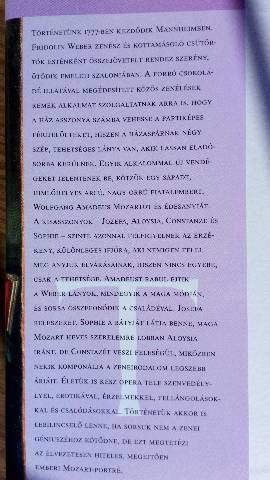 Történetünk 1777-ben kezdődik Mannheimben.
Fridolin Weber zenész és kottamásoló csütör-
tök esténként összejövetelt rendez szerény,
ötödik emeleti szalonjában. A forró csokolá-
dé illatával megédesített közös zenélések
remek alkalmat szolgáltatnak arra is, hogy
a ház asszonya számba vehesse a partiképes
férjjelölteket, hiszen a házaspárnak négy
szép, tehetséges lánya van, akik lassan eladó-
sorba kerülnek. Egyik alkalommal új vendé-
geket jelentenek be, köztük egy sápadt,
himlőhelyes arcú, nagy orrú fiatalembert,
Wolfgang Amadeus Mozartot és édesanyját.
A kisasszonyok – Josefa, Aloysia, Constanze és
Sophie – szinte azonnal felfigyelnek az érzé-
keny, különleges ifjúra, aki nemigen felel
meg anyjuk elvárásainak, hiszen nincs egyebe,
csak a tehetsége. Amadeust rabul ejtik
a Weber-lányok, mindegyik a maga módján,
és sorsa összefonódik a családéval. Josefa
beleszeret, Sophie a bátyját látja benne, maga
Mozart heves szerelemre lobban Aloysia
iránt, de Constanzét veszi feleségül, miközben
nekik komponálja a zeneirodalom legszebb
áriáit. Életük is kész opera tele szenvedély-
lyel, erotikával, érzelmekkel, fellángolások-
kal és csalódásokkal. Történetük akkor is
lebilincselő lenne, ha sorsuk nem a zenei
géniuszéhoz kötődne, de ezt megtetézi
az élvezetesen hiteles, megejtően
emberi Mozart-portré.